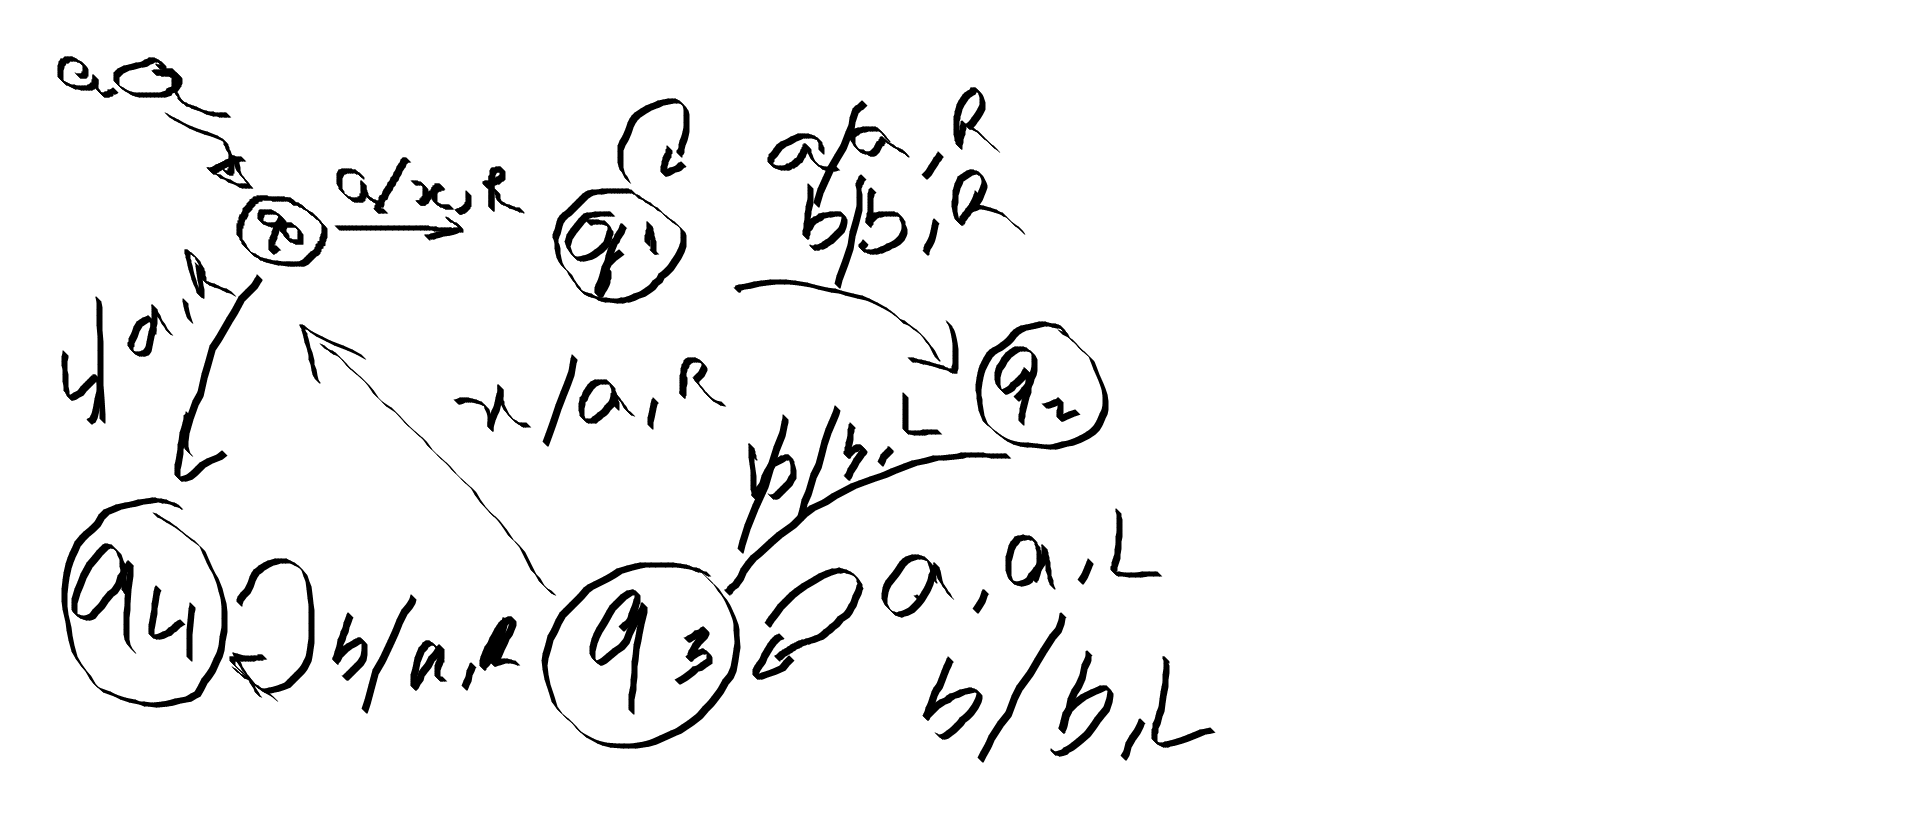 a
q0
a/x,R
q1
a/a,R
b/b,R
y/a,R
x/a,R
q2
b/b,L
q4
b/a,R
q3
a,a,L
b/b,L